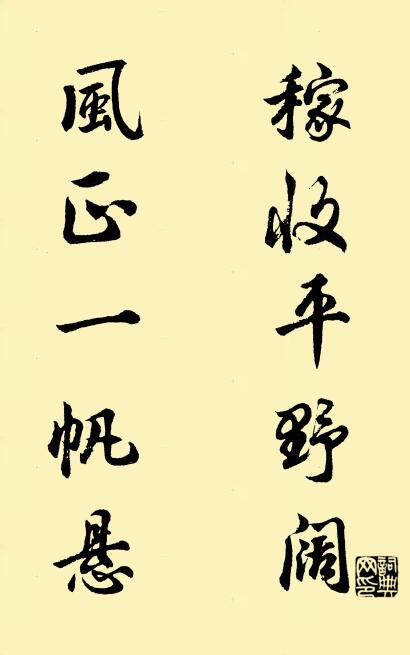 稼收平野阔
風正一帆悬
詞典
网印